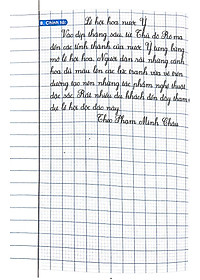 B. Chính tả
Lễ hội hoa nước Ý
Vào dịp tháng sáu, từ Thủ đô Rô-ma
đến các tỉnh thành của nước Ý tưng bừng
mở lễ hội hoa. Người dân rải những cánh
hoa đủ màu lên các bức tranh vẽ trên
đường tạo nên những tác phẩm nghệ thuật
đặc sắc. Rất nhiều du khách đến đây tham
dự lễ hội độc đáo này.
Theo Phạm Minh Châu